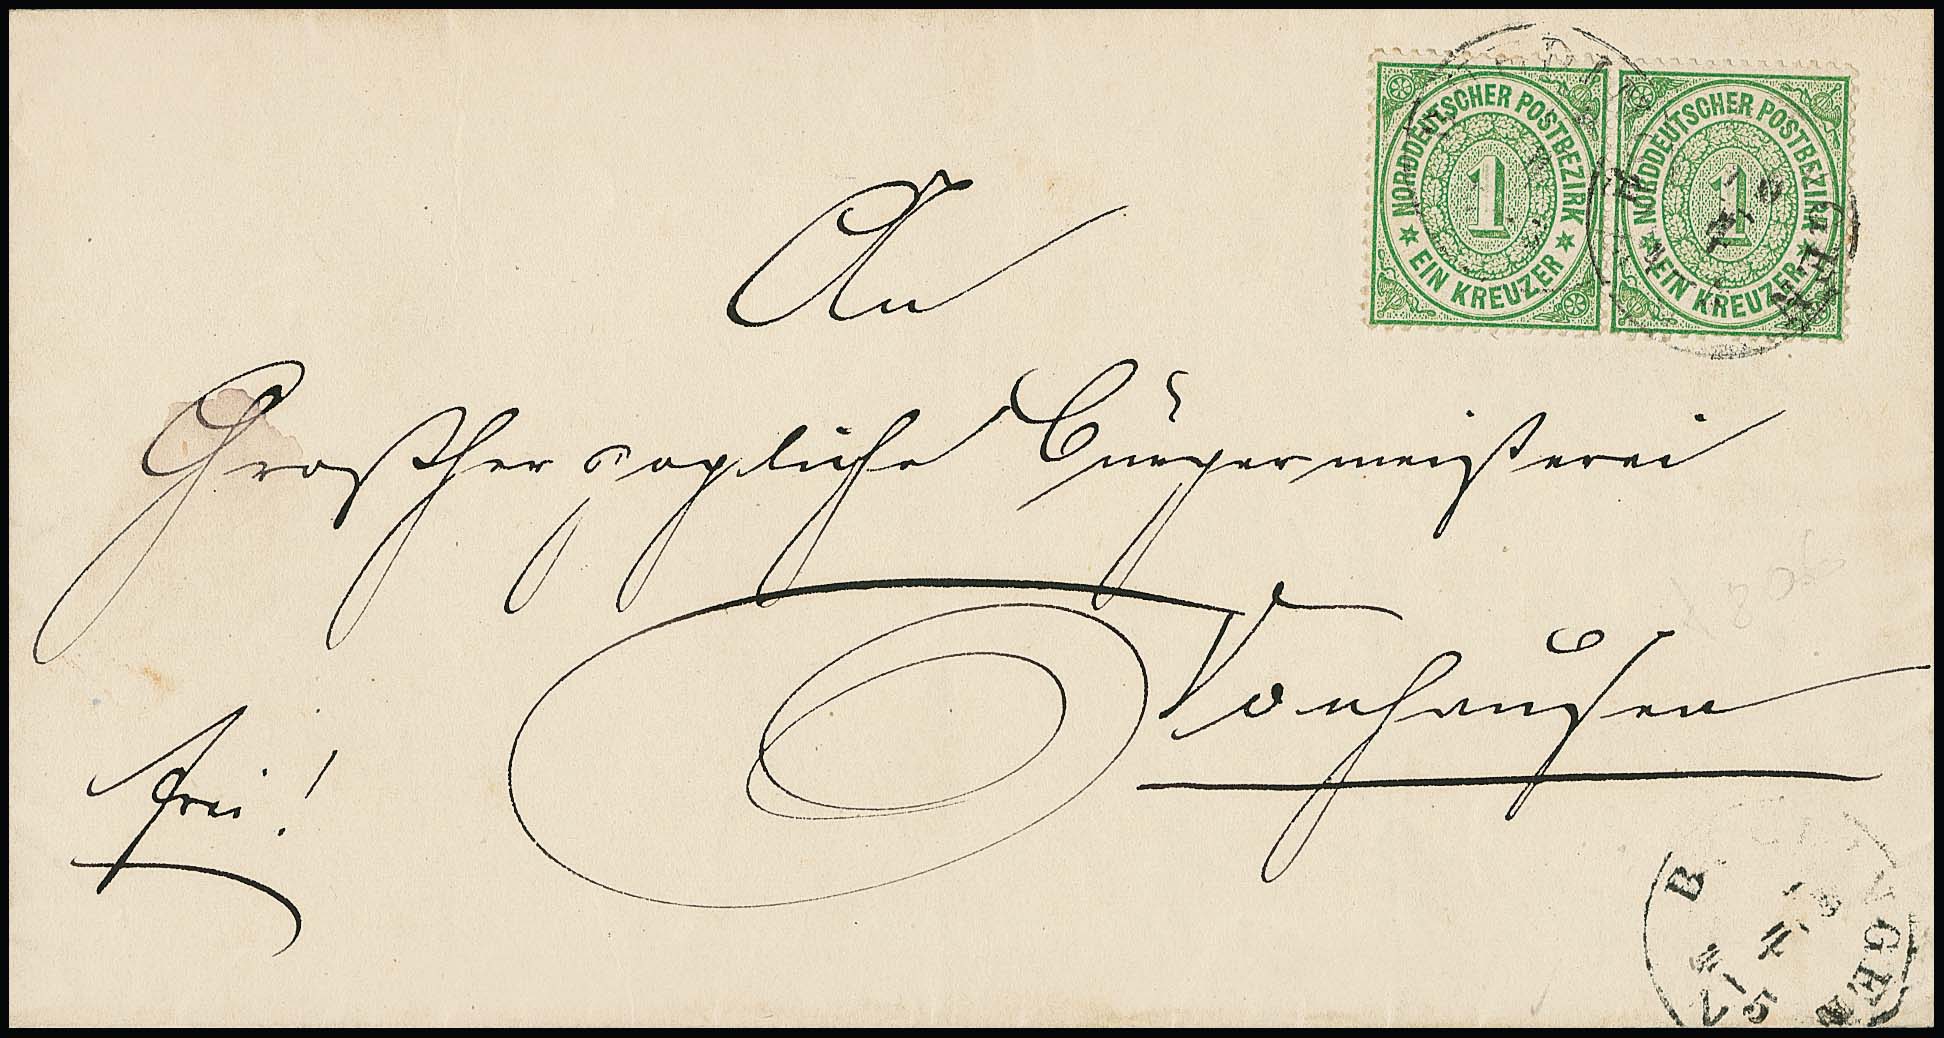 NORDDEUTSCHER POSTBEZIRK
1
EIN KREUZER
NORDDEUTSCHER POSTBEZIRK
1
EIN KREUZER
An
Großherzogliche Bürgermeisterei
Vonhausen
frei!